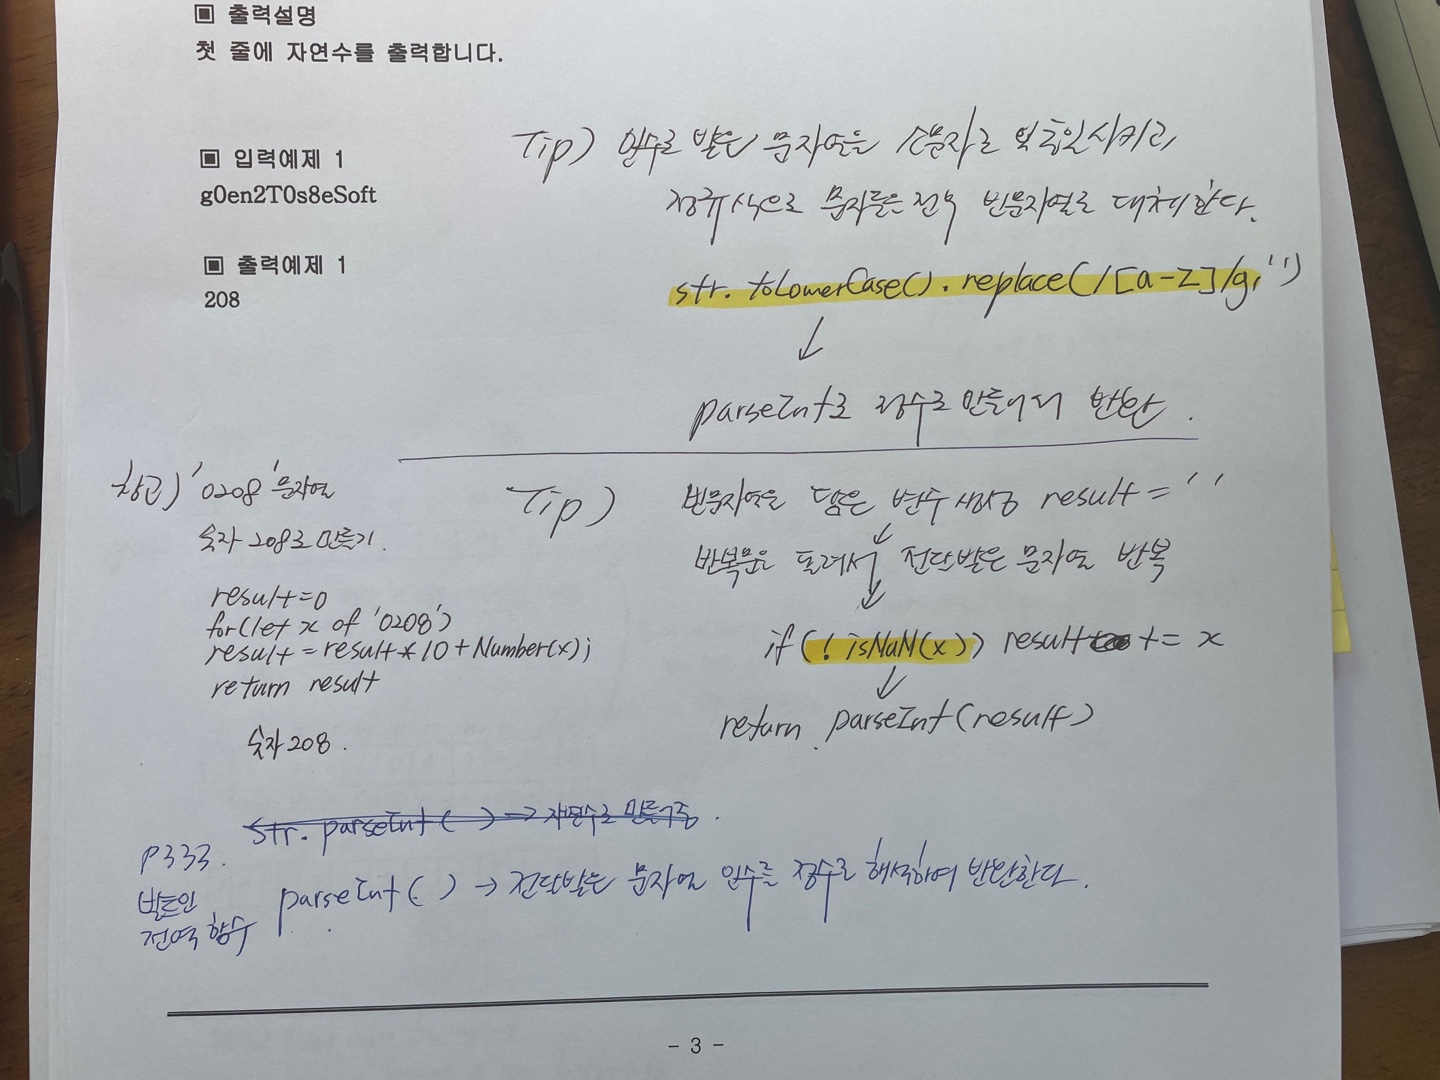 ▣ 출력설명
첫 줄에 자연수를 출력합니다.
▣ 입력예제 1
g0en2T0s8eSoft
▣ 출력예제 1
208
Tip) 인수로 받은 문자열을 소문자로 통일시키고
정규식으로 문자들은 전부 빈문자열로 대체한다.
str.toLowerCase().replace(/[a-z]/g,'')
↓
parseInt로 정수로 만들어서 반환.
참고) '0208' 문자열
숫자 208로 만들기.
result=0
for(let x of '0208')
result=result*10+Number(x);
return result
숫자 208.
Tip) 빈문자열을 담은 변수 생성 result=''
↓
반복문을 돌려서 전달받은 문자열 반복
↓
if(!isNaN(x)) result += x
↓
return parseInt(result)
str.parseInt( ) → 자연수로 만들어줌.
P333.
빌트인
전역 함수
parseInt( ) → 전달받은 문자열 인수를 정수로 해석하여 반환한다.
- 3 -